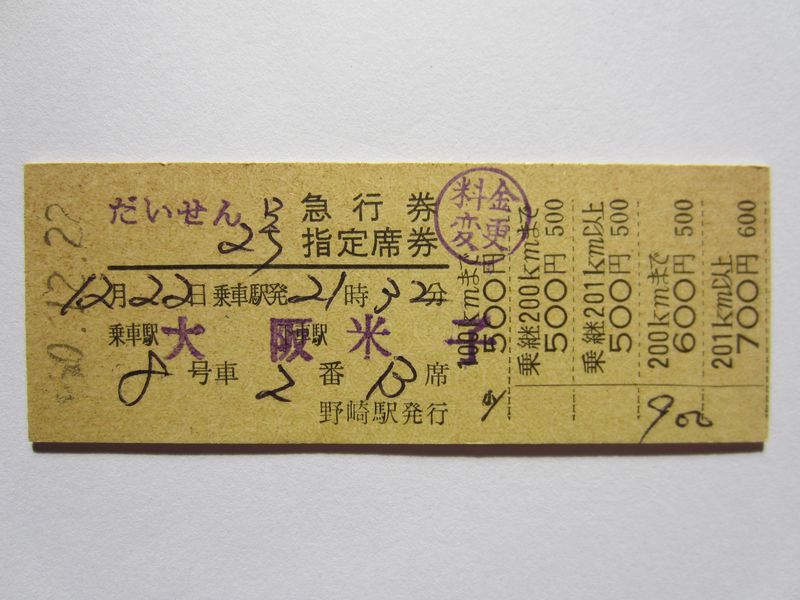 50.12.22
だいせん 2号
急行券
指定席券
料金
変更
12月22日乗車駅発21時32分
乗車駅 大阪 下車駅 米子
8号車 2番 B席
野崎駅発行
100kmまで 500円
乗継200kmまで 500円 500
乗継201km以上 500円 500
200kmまで 600円 500
201km以上 700円 600
900